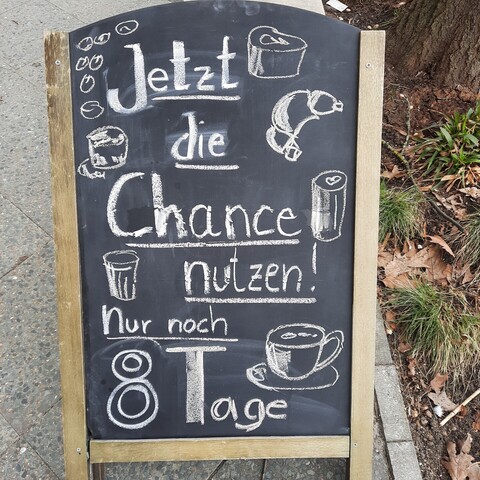 Jetzt
die
Chance
nutzen!
Nur noch
8 Tage